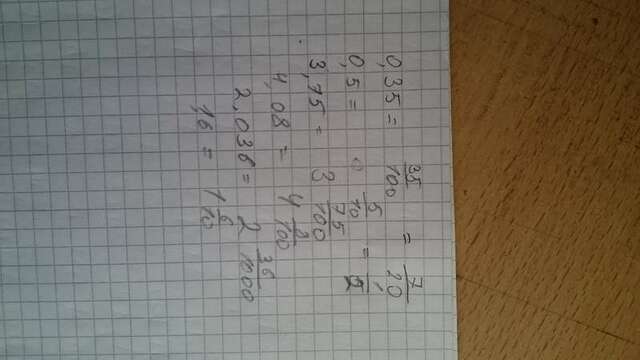 0,35 = 35/100 = 7/20
0,5 = 5/10 = 1/2
3,75 = 3 75/100
4,08 = 4 8/100
2,036 = 2 36/1000
1,6 = 1 6/10